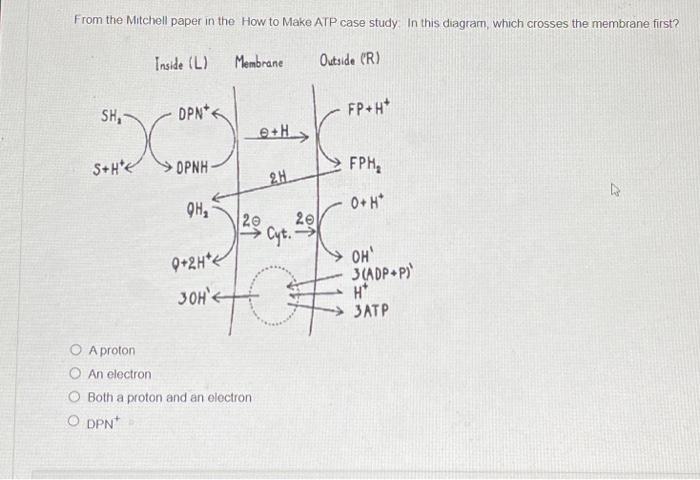 From the Mitchell paper in the How to Make ATP case study: In this diagram, which crosses the membrane first?
Inside (L) Membrane Outside (R)
SH₂ DPN⁺ FP+H⁺
⊖+H
S+H⁺ DPNH FPH₂
2H
QH₂ 2⊖ 2⊖ O+H⁺
Cyt.
Q+2H⁺ OH'
3(ADP+P)'
3OH' H⁺
3ATP
A proton
An electron
Both a proton and an electron
DPN⁺